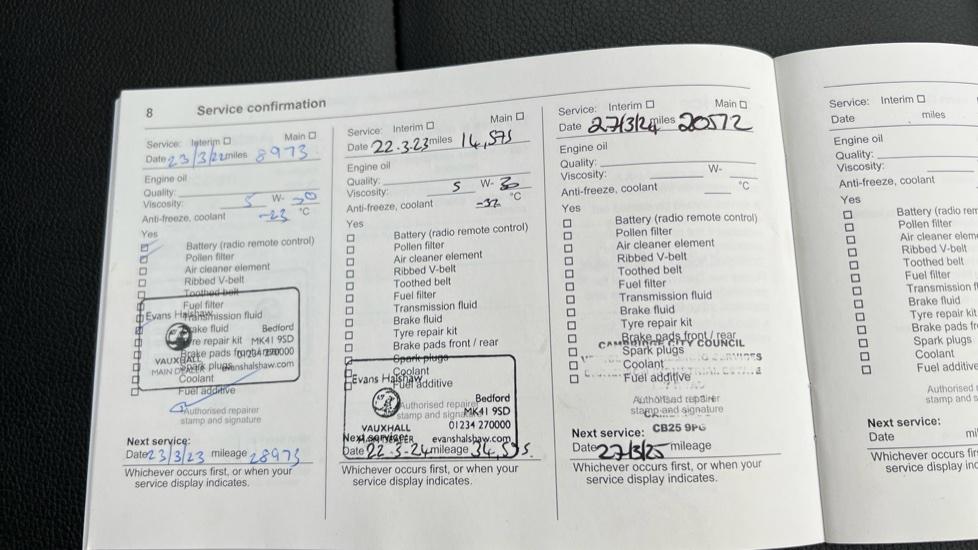 8 Service confirmation
Service: Interim ☐ Main ☐
Date 23/3/22 miles 8973
Engine oil
Quality:
Viscosity: 5 W- 30
Anti-freeze, coolant -23 °C
Yes
Battery (radio remote control)
Pollen filter
Air cleaner element
Ribbed V-belt
Toothed belt
Fuel filter
Evans Halshaw Transmission fluid
Brake fluid Bedford
Tyre repair kit MK41 9SD
Brake pads front / rear 01234 270000
VAUXHALL Spark plugs evanshalshaw.com
MAIN DEALER
Coolant
Fuel additive
Authorised repairer
stamp and signature
Next service:
Date 23/3/23 mileage 28973
Whichever occurs first, or when your
service display indicates.
Service: Interim ☐ Main ☐
Date 22.3.23 miles 14,575
Engine oil
Quality:
Viscosity: 5 W- 30
Anti-freeze, coolant -32 °C
Yes
Battery (radio remote control)
Pollen filter
Air cleaner element
Ribbed V-belt
Toothed belt
Fuel filter
Transmission fluid
Brake fluid
Tyre repair kit
Brake pads front / rear
Spark plugs
Coolant
Evans Halshaw Fuel additive
Bedford
Authorised repairer
stamp and signature MK41 9SD
VAUXHALL 01234 270000
MAIN DEALER evanshalshaw.com
Next service:
Date 22.3-24 mileage 34,575.
Whichever occurs first, or when your
service display indicates.
Service: Interim ☐ Main ☐
Date 27/3/24 miles 20572
Engine oil
Quality:
Viscosity: W-
Anti-freeze, coolant °C
Yes
Battery (radio remote control)
Pollen filter
Air cleaner element
Ribbed V-belt
Toothed belt
Fuel filter
Transmission fluid
Brake fluid
Tyre repair kit
Brake pads front / rear
CAMBRIDGE CITY COUNCIL
Spark plugs
SERVICES
Coolant
Fuel additive
Authorised repairer
stamp and signature
CB25 9PG
Next service:
Date 27/3/25 mileage
Whichever occurs first, or when your
service display indicates.
Service: Interim ☐
Date miles
Engine oil
Quality:
Viscosity:
Anti-freeze, coolant
Yes
Battery (radio rem
Pollen filter
Air cleaner elem
Ribbed V-belt
Toothed belt
Fuel filter
Transmission f
Brake fluid
Tyre repair kit
Brake pads f
Spark plugs
Coolant
Fuel additive
Authorised
stamp and s
Next service:
Date mi
Whichever occurs fir
service display inc